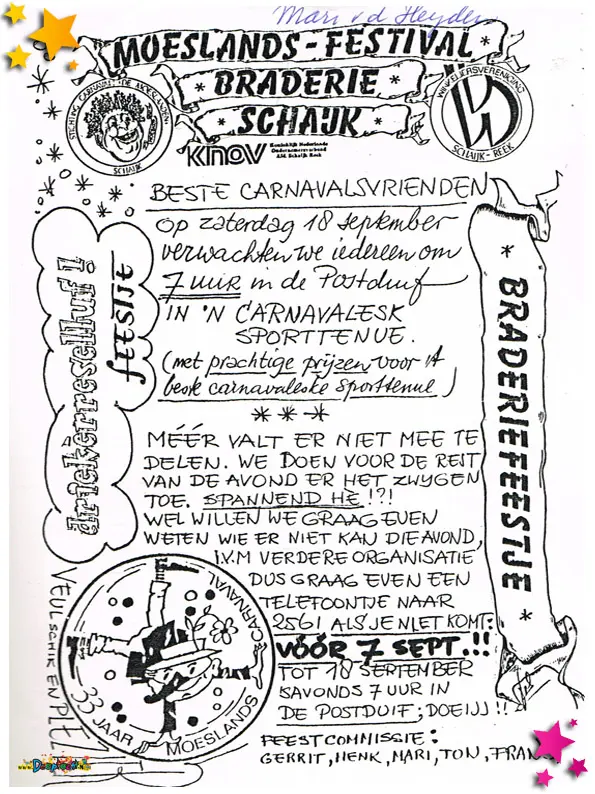 Mari v d Heyden
MOESLANDS-FESTIVAL *
* BRADERIE *
* SCHAIJK *
STICHTING CARNAVAL IN DE MOESLANDEN
SCHAIJK
WINKELIERSVERENIGING
SCHAIJK-REEK
KNOV Koninklijk Nederlands
Ondernemersverbond
Afd. Schaijk Reek
BESTE CARNAVALSVRIENDEN
Op zaterdag 18 september
verwachten we iedereen om
7 uur in de Postduif
IN 'N CARNAVALESK
SPORTTENUE.
(met prachtige prijzen voor 't
beste carnavaleske sporttenue)
* * *
MÉÉR VALT ER NIET MEE TE
DELEN. WE DOEN VOOR DE REST
VAN DE AVOND ER HET ZWIJGEN
TOE. SPANNEND HÈ!?!
WEL WILLEN WE GRAAG EVEN
WETEN WIE ER NIET KAN DIE AVOND,
I.V.M VERDERE ORGANISATIE
DUS GRAAG EVEN EEN
TELEFOONTJE NAAR
2561 ALS JE NIET KOMT:
VÓÓR 7 SEPT.!!
TOT 18 SEPTEMBER
SAVONDS 7 UUR IN
DE POSTDUIF; DOEIJJ!!
FEESTCOMMISSIE:
GERRIT, HENK, MARI, TON, FRANS
driekèrreselluf!
feestje
* BRADERIEFEESTJE *
33 JAAR
MOESLANDS
CARNAVAL
VEUL SCHIK EN PLE